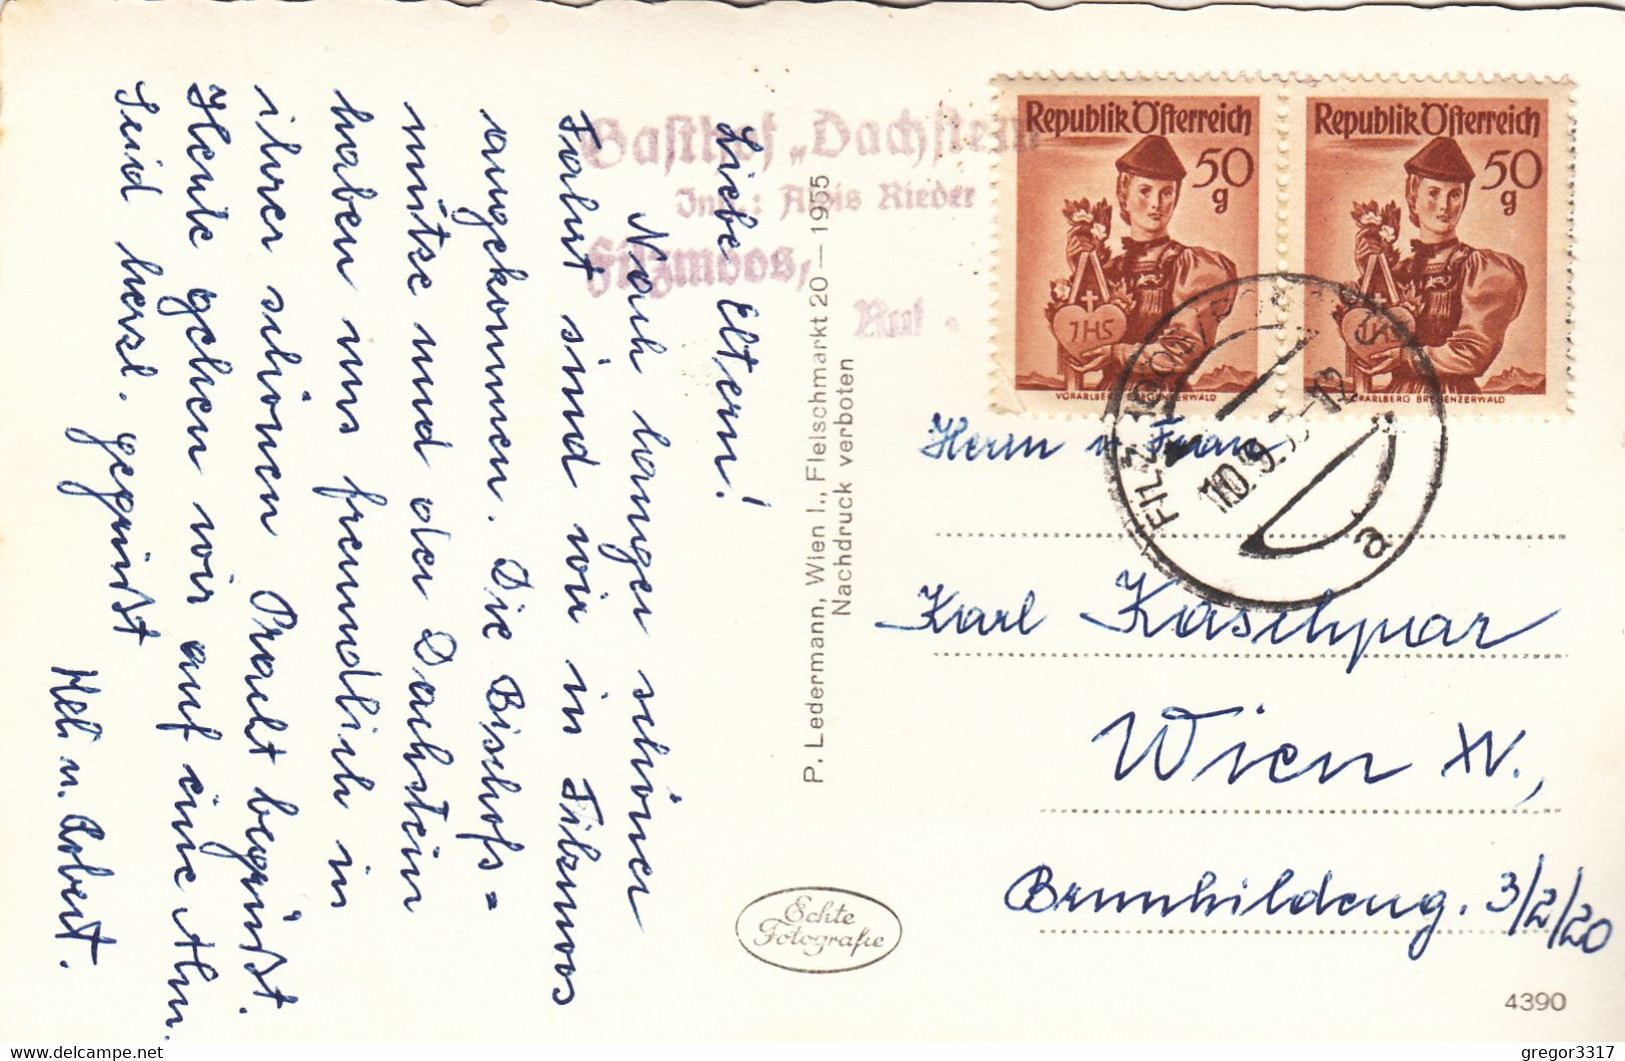 Liebe Eltern!
Nach langer schöner
Fahrt sind wir in Filzmoos
angekommen. Die Bischofs=
mütze und der Dachstein
haben uns freundlich in
ihrer schönen Pracht begrüßt.
Heute gehen wir auf eine Alm.
Seid herzl. gegrüßt
Heli u. Herbert.
Gasthof „Dachstein"
Inh.: Alois Rieder
Filzmoos,
Ruf
P. Ledermann, Wien I., Fleischmarkt 20 — 1955
Nachdruck verboten
Echte
Fotografie
Republik Österreich
50
g
JHS
VORARLBERG BREGENZERWALD
Republik Österreich
50
g
JHS
VORARLBERG BREGENZERWALD
FILZMOOS
10.9.
a
Herrn u. Frau
Karl Kaschpar
Wien XV.,
Brunhildeng. 3/2/20
4390
gregor3317